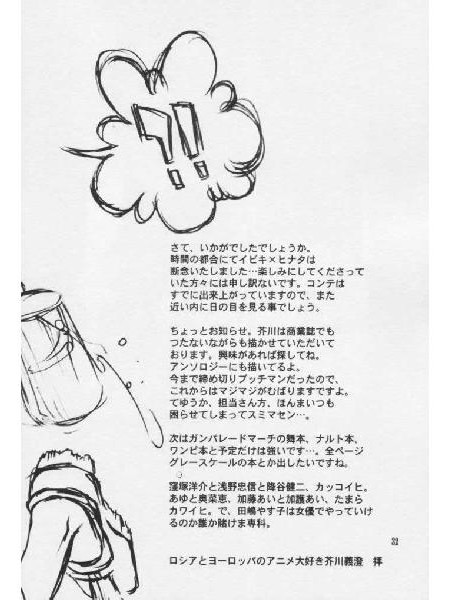 ?!!
さて、いかがでしたでしょうか。
時間の都合にてイビキ×ヒナタは
断念いたしました…楽しみにしてくださって
いた方々には申し訳ないです。コンテは
すでに出来上がっていますので、また
近い内に日の目を見る事でしょう。
ちょっとお知らせ。芥川は商業誌でも
つたないながらも描かせていただいて
おります。興味があれば探してね。
アンソロジーにも描いてるよ。
今まで締め切りブッチマンだったので、
これからはマジマジがむばりますですよ。
てゆうか、担当さん方、ほんまいつも
困らせてしまってスミマセン…。
次はガンパレードマーチの舞本、ナルト本、
ワンピ本と予定だけは強いです…。全ページ
グレースケールの本とか出したいですね。
窪塚洋介と浅野忠信と降谷健二、カッコイイ。
あゆと奥菜恵、加藤あいと加護あい、たまら
カワイヒ。で、田嶋やす子は女優でやっていけ
るのか誰か賭けま専科。
32
ロシアとヨーロッパのアニメ大好き芥川義澄 拝